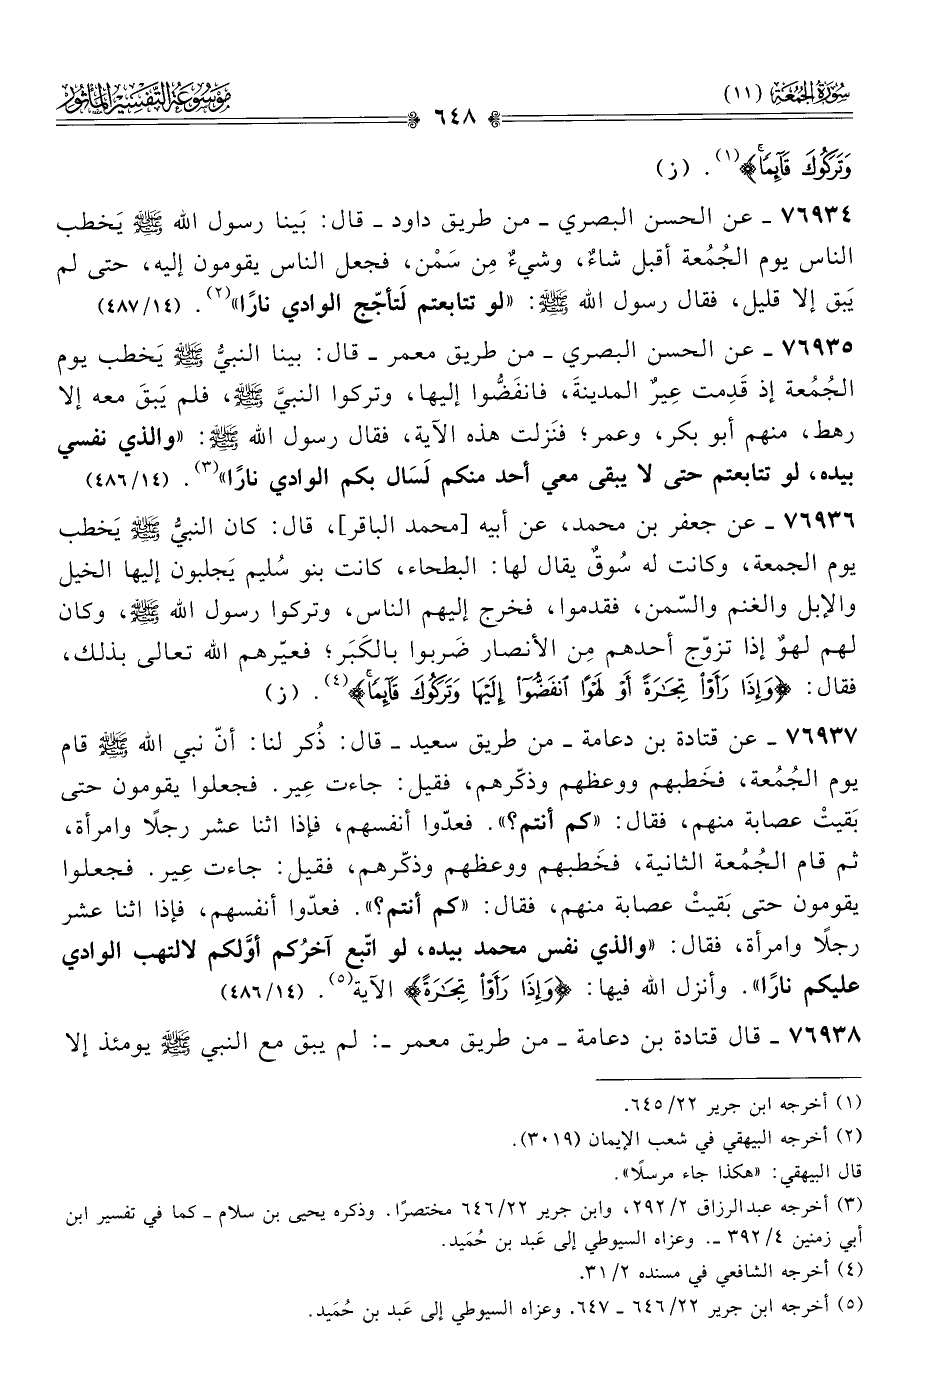 سُورَةُ الجُمُعَةِ (١١)
٦٤٨
مَوْسُوعَةُ التَّفْسِيرِ المَأْثُور
وَتَرَكُوكَ قَآئِمٗاۚ﴾(١). (ز)
٧٦٩٣٤ ـ عن الحسن البصري ـ من طريق داود ـ قال: بَينا رسول الله ﷺ يَخطب
الناس يوم الجُمُعة أقبل شاءٌ، وشيءٌ مِن سَمْن، فجعل الناس يقومون إليه، حتى لم
يَبق إلا قليل، فقال رسول الله ﷺ: «لو تتابعتم لَتأجّج الوادي نارًا»(٢). (١٤/٤٨٧)
٧٦٩٣٥ ـ عن الحسن البصري ـ من طريق معمر ـ قال: بينا النبيُّ ﷺ يَخطب يوم
الجُمُعة إذ قَدِمت عِيرٌ المدينةَ، فانفَضُّوا إليها، وتركوا النبيَّ ﷺ، فلم يَبقَ معه إلا
رهط، منهم أبو بكر، وعمر؛ فنَزلت هذه الآية، فقال رسول الله ﷺ: «والذي نفسي
بيده، لو تتابعتم حتى لا يبقى معي أحد منكم لَسَال بكم الوادي نارًا»(٣). (١٤/٤٨٦)
٧٦٩٣٦ ـ عن جعفر بن محمد، عن أبيه [محمد الباقر]، قال: كان النبيُّ ﷺ يَخطب
يوم الجمعة، وكانت له سُوقٌ يقال لها: البطحاء، كانت بنو سُليم يَجلبون إليها الخيل
والإبل والغنم والسّمن، فقدموا، فخرج إليهم الناس، وتركوا رسول الله ﷺ، وكان
لهم لهوٌ إذا تزوّج أحدهم مِن الأنصار ضَربوا بالكَبَر؛ فعيّرهم الله تعالى بذلك،
فقال: ﴿وَإِذَا رَأَوۡاْ تِجَٰرَةً أَوۡ لَهۡوًا ٱنفَضُّوٓاْ إِلَيۡهَا وَتَرَكُوكَ قَآئِمٗاۚ﴾(٤). (ز)
٧٦٩٣٧ ـ عن قتادة بن دعامة ـ من طريق سعيد ـ قال: ذُكر لنا: أنّ نبي الله ﷺ قام
يوم الجُمُعة، فخَطبهم ووعظهم وذكّرهم، فقيل: جاءت عِير. فجعلوا يقومون حتى
بَقيتْ عصابة منهم، فقال: «كم أنتم؟». فعدّوا أنفسهم، فإذا اثنا عشر رجلًا وامرأة،
ثم قام الجُمُعة الثانية، فخَطبهم ووعظهم وذكّرهم، فقيل: جاءت عِير. فجعلوا
يقومون حتى بَقيتْ عصابة منهم، فقال: «كم أنتم؟». فعدّوا أنفسهم، فإذا اثنا عشر
رجلًا وامرأة، فقال: «والذي نفس محمد بيده، لو اتّبع آخرُكم أوَّلكم لالتهب الوادي
عليكم نارًا». وأنزل الله فيها: ﴿وَإِذَا رَأَوۡاْ تِجَٰرَةً﴾ الآية(٥). (١٤/٤٨٦)
٧٦٩٣٨ ـ قال قتادة بن دعامة ـ من طريق معمر ـ: لم يبق مع النبي ﷺ يومئذ إلا
(١) أخرجه ابن جرير ٢٢/٦٤٥.
(٢) أخرجه البيهقي في شعب الإيمان (٣٠١٩).
قال البيهقي: «هكذا جاء مرسلًا».
(٣) أخرجه عبدالرزاق ٢/٢٩٢، وابن جرير ٢٢/٦٤٦ مختصرًا. وذكره يحيى بن سلام ـ كما في تفسير ابن
أبي زمنين ٤/٣٩٢ ـ. وعزاه السيوطي إلى عَبد بن حُمَيد.
(٤) أخرجه الشافعي في مسنده ٢/٣١.
(٥) أخرجه ابن جرير ٢٢/٦٤٦ ـ ٦٤٧. وعزاه السيوطي إلى عَبد بن حُمَيد.